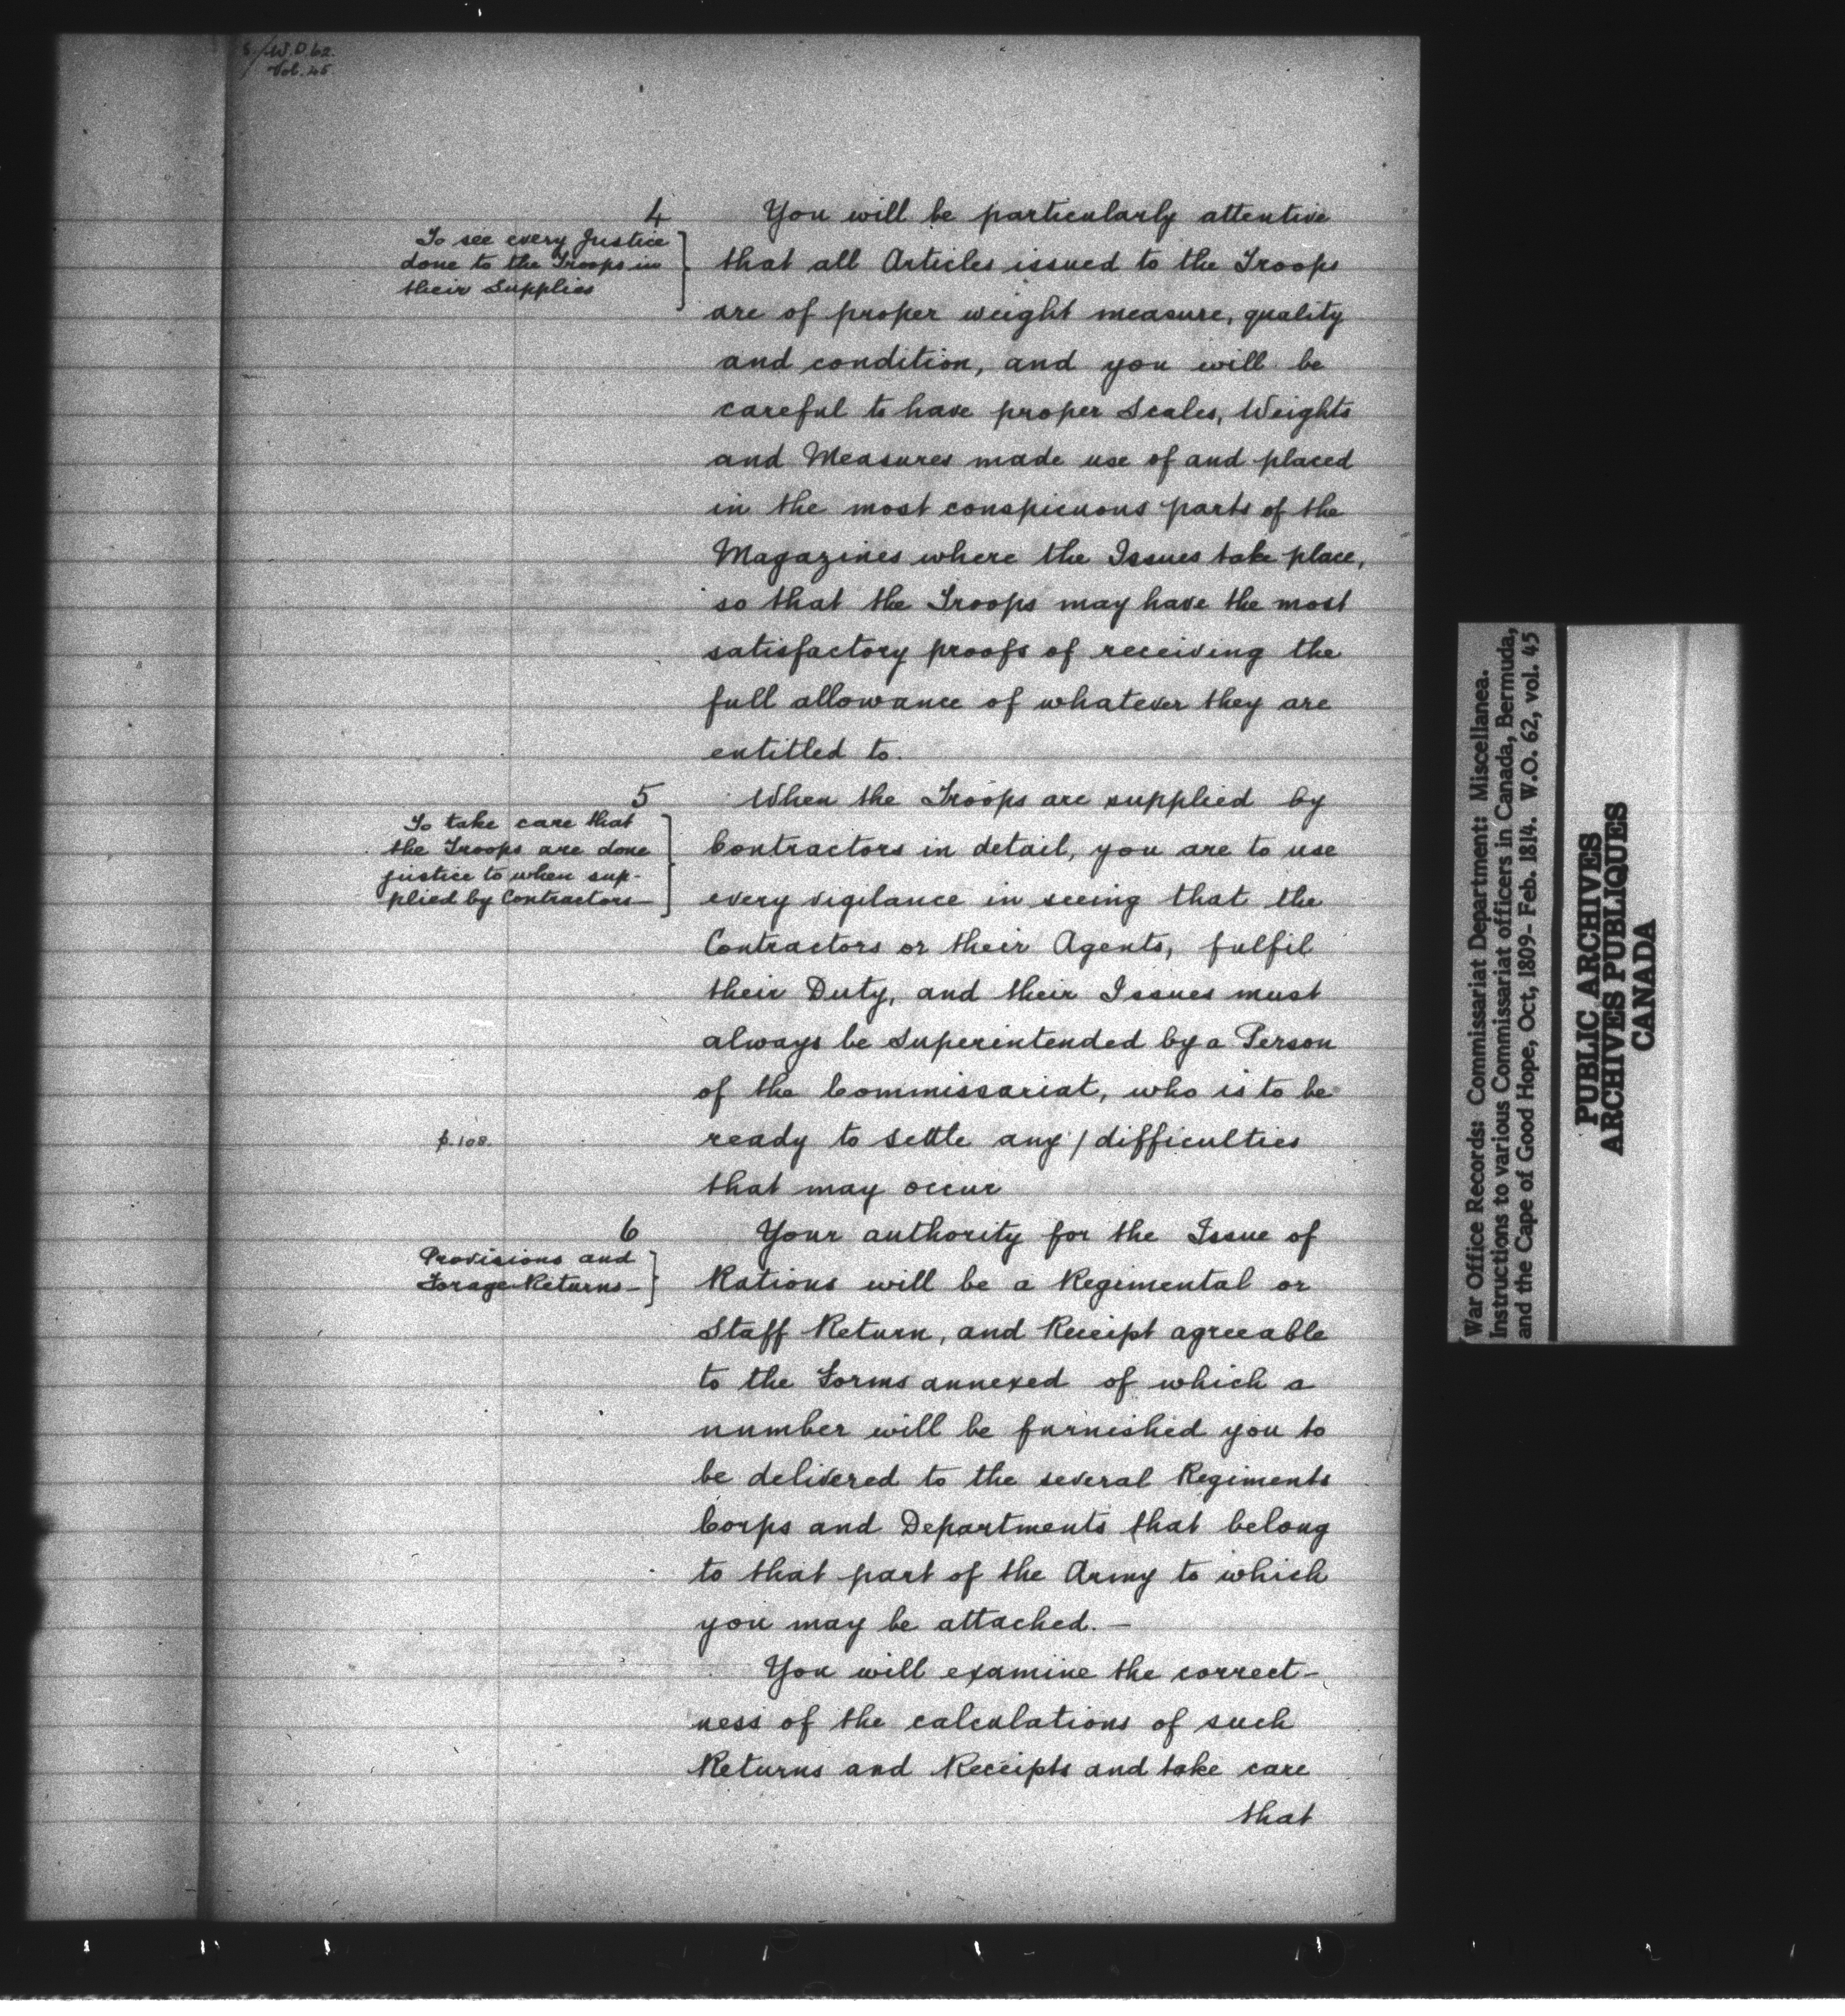 W.O. 62.
Vol. 45.
4
To see every Justice
done to the Troops in
their Supplies
You will be particularly attentive
that all Articles issued to the Troops
are of proper weight measure, quality
and condition, and you will be
careful to have proper Scales, Weights
and Measures made use of and placed
in the most conspicuous parts of the
Magazines where the Issues take place,
so that the Troops may have the most
satisfactory proofs of receiving the
full allowance of whatever they are
entitled to.
5
To take care that
the Troops are done
justice to when sup-
plied by Contractors—
When the Troops are supplied by
Contractors in detail, you are to use
every vigilance in seeing that the
Contractors or their Agents, fulfil
their Duty, and their Issues must
always be Superintended by a Person
of the Commissariat, who is to be
p. 108.
ready to settle any / difficulties
that may occur
6
Provisions and
Forage Returns—
Your authority for the Issue of
Rations will be a Regimental or
Staff Return, and Receipt agreeable
to the Forms annexed of which a
number will be furnished you to
be delivered to the several Regiments
Corps and Departments that belong
to that part of the Army to which
you may be attached.—
You will examine the correct-
ness of the calculations of such
Returns and Receipts and take care
that
War Office Records: Commissariat Department: Miscellanea.
Instructions to various Commissariat officers in Canada, Bermuda,
and the Cape of Good Hope, Oct, 1809- Feb. 1814. W.O. 62, vol. 45
PUBLIC ARCHIVES
ARCHIVES PUBLIQUES
CANADA